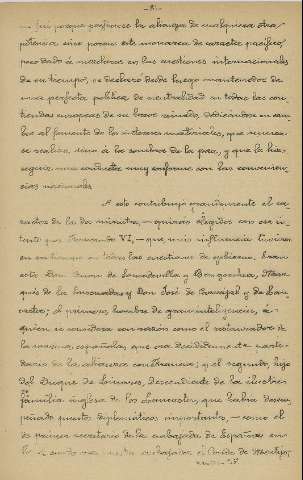 fuí porque prefiriese la alianza de cualquiera otra
potencia sino porque este monarca de caracter pacífico,
poco dado a mezclarse en las cuestiones internacionales
de su tiempo, se declaró desde luego mantenedor de
una perfecta política de neutralidad en todas las con-
tiendas europeas de su breve reinado, dedicándose en cam-
bio al fomento de los intereses materiales, que nunca
se realiza sino á la sombra de la paz, y que le hizo
seguir una conducta muy conforme con las convenien-
cias nacionales.
A esto contribuyó grandemente el ca-
racter de los dos ministros, — quienes elegidos con
por Fernando VI, — que más influencia tuvieron
en su tiempo en todas las cuestiones de gobierno,
Don Zenon de Somodevilla y Bengoechea, Mar-
qués de la Ensenada y Don José de Carvajal y de Lan-
caster; el primero, hombre de gran inteligencia, a
quien se considera con razón como el restaurador de
la marina española, que era decidido parti-
dario de la alianza con Francia; y el segundo, hijo
del Duque de Linares, descendiente de la ilustre
familia inglesa de los Lancaster, que había desem-
peñado puestos diplomáticos importantes, — como el
de primer secretario de la embajada de España en
embajador el Conde de Montijo,